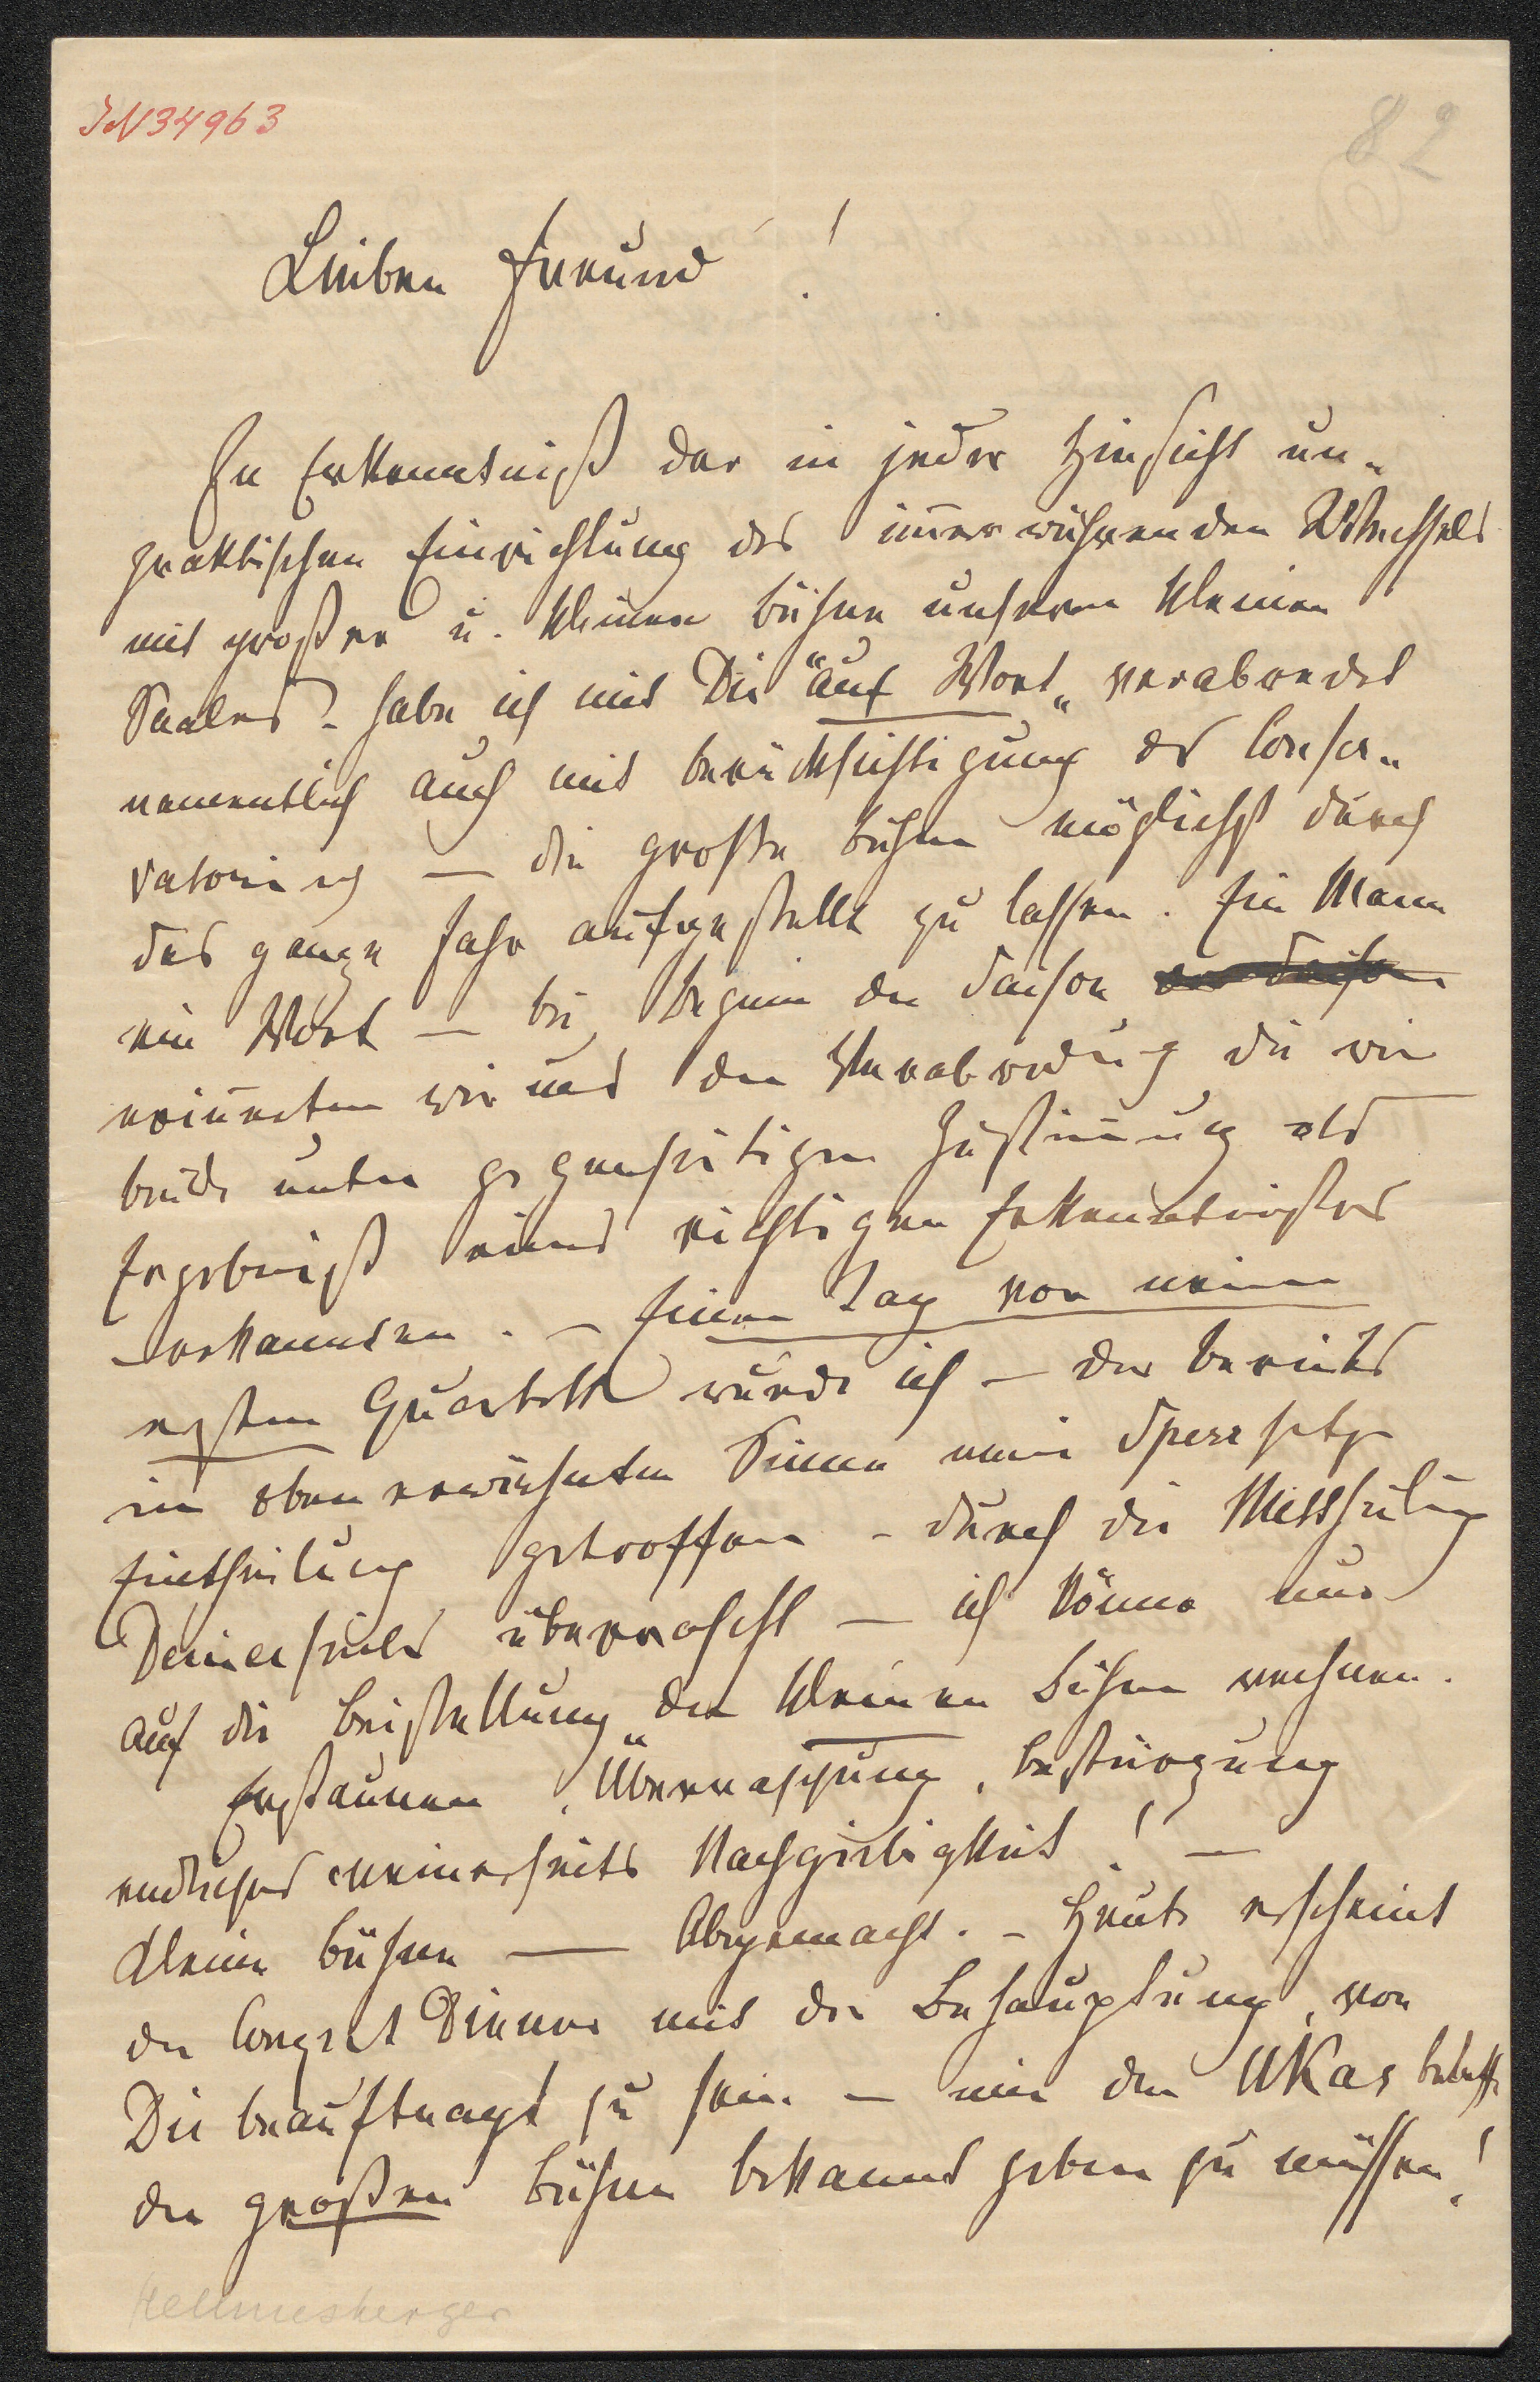 IN 34963
82
Lieber Freund!
In Erkenntniß der in jeder Hinsicht un-
praktischen Einrichtung des im̅erwährenden Wechsels
mit großer u. kleiner Bühne unseren kleinen
Saales - habe ich mit Dir "auf Wort" verabredet
namentlich auch mit Berücksichtigung des Conser-
vatoriums — die große Bühne möglichst durch
das ganze Jahr aufgestellt zu lassen. Ein Mann
ein Wort — bei Beginn der Saison der Saison
erin̅erten wir uns der Verabredung die wir
beide unter gegenseitiger Zustim̅ung als
Ergebniß eines richtigen Erkenntnißes
erkannten. — Einen Tag vor meinem
ersten Quartett wurde ich — der bereits
im oben erwähnten Sinne meine Sperrsitz
Eintheilung getroffen - durch die Mittheilung
Deinerseits überrascht — ich könne nur
auf die Beistellung der kleinen Bühne rechnen.
Erstaunen, Überraschung, Bestürzung
endliches meinerseits Nachgiebigkeit! —
Kleine Bühne — Abgemacht. - Heute erscheint
der Conzert Diener mit der Behauptung, von
Dir beauftragt zu sein — mir den Ukas betreffs
der großen Bühne bekannt geben zu müssen!
Hellmesberger